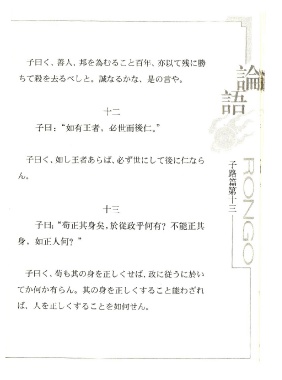 子曰く、善人、邦を為むること百年、亦以て残に勝
ちて殺を去るべしと。誠なるかな、是の言や。
十二
子曰：“如有王者，必世而後仁。”
子曰く、如し王者あらば、必ず世にして後に仁なら
ん。
十三
子曰：“苟正其身矣，於從政乎何有？不能正其
身，如正人何？”
子曰く、苟も其の身を正しくせば、政に従うに於い
てか何か有らん。其の身を正しくすること能わざれ
ば、人を正しくすることを如何せん。
論語
RONGO
子路篇第十三